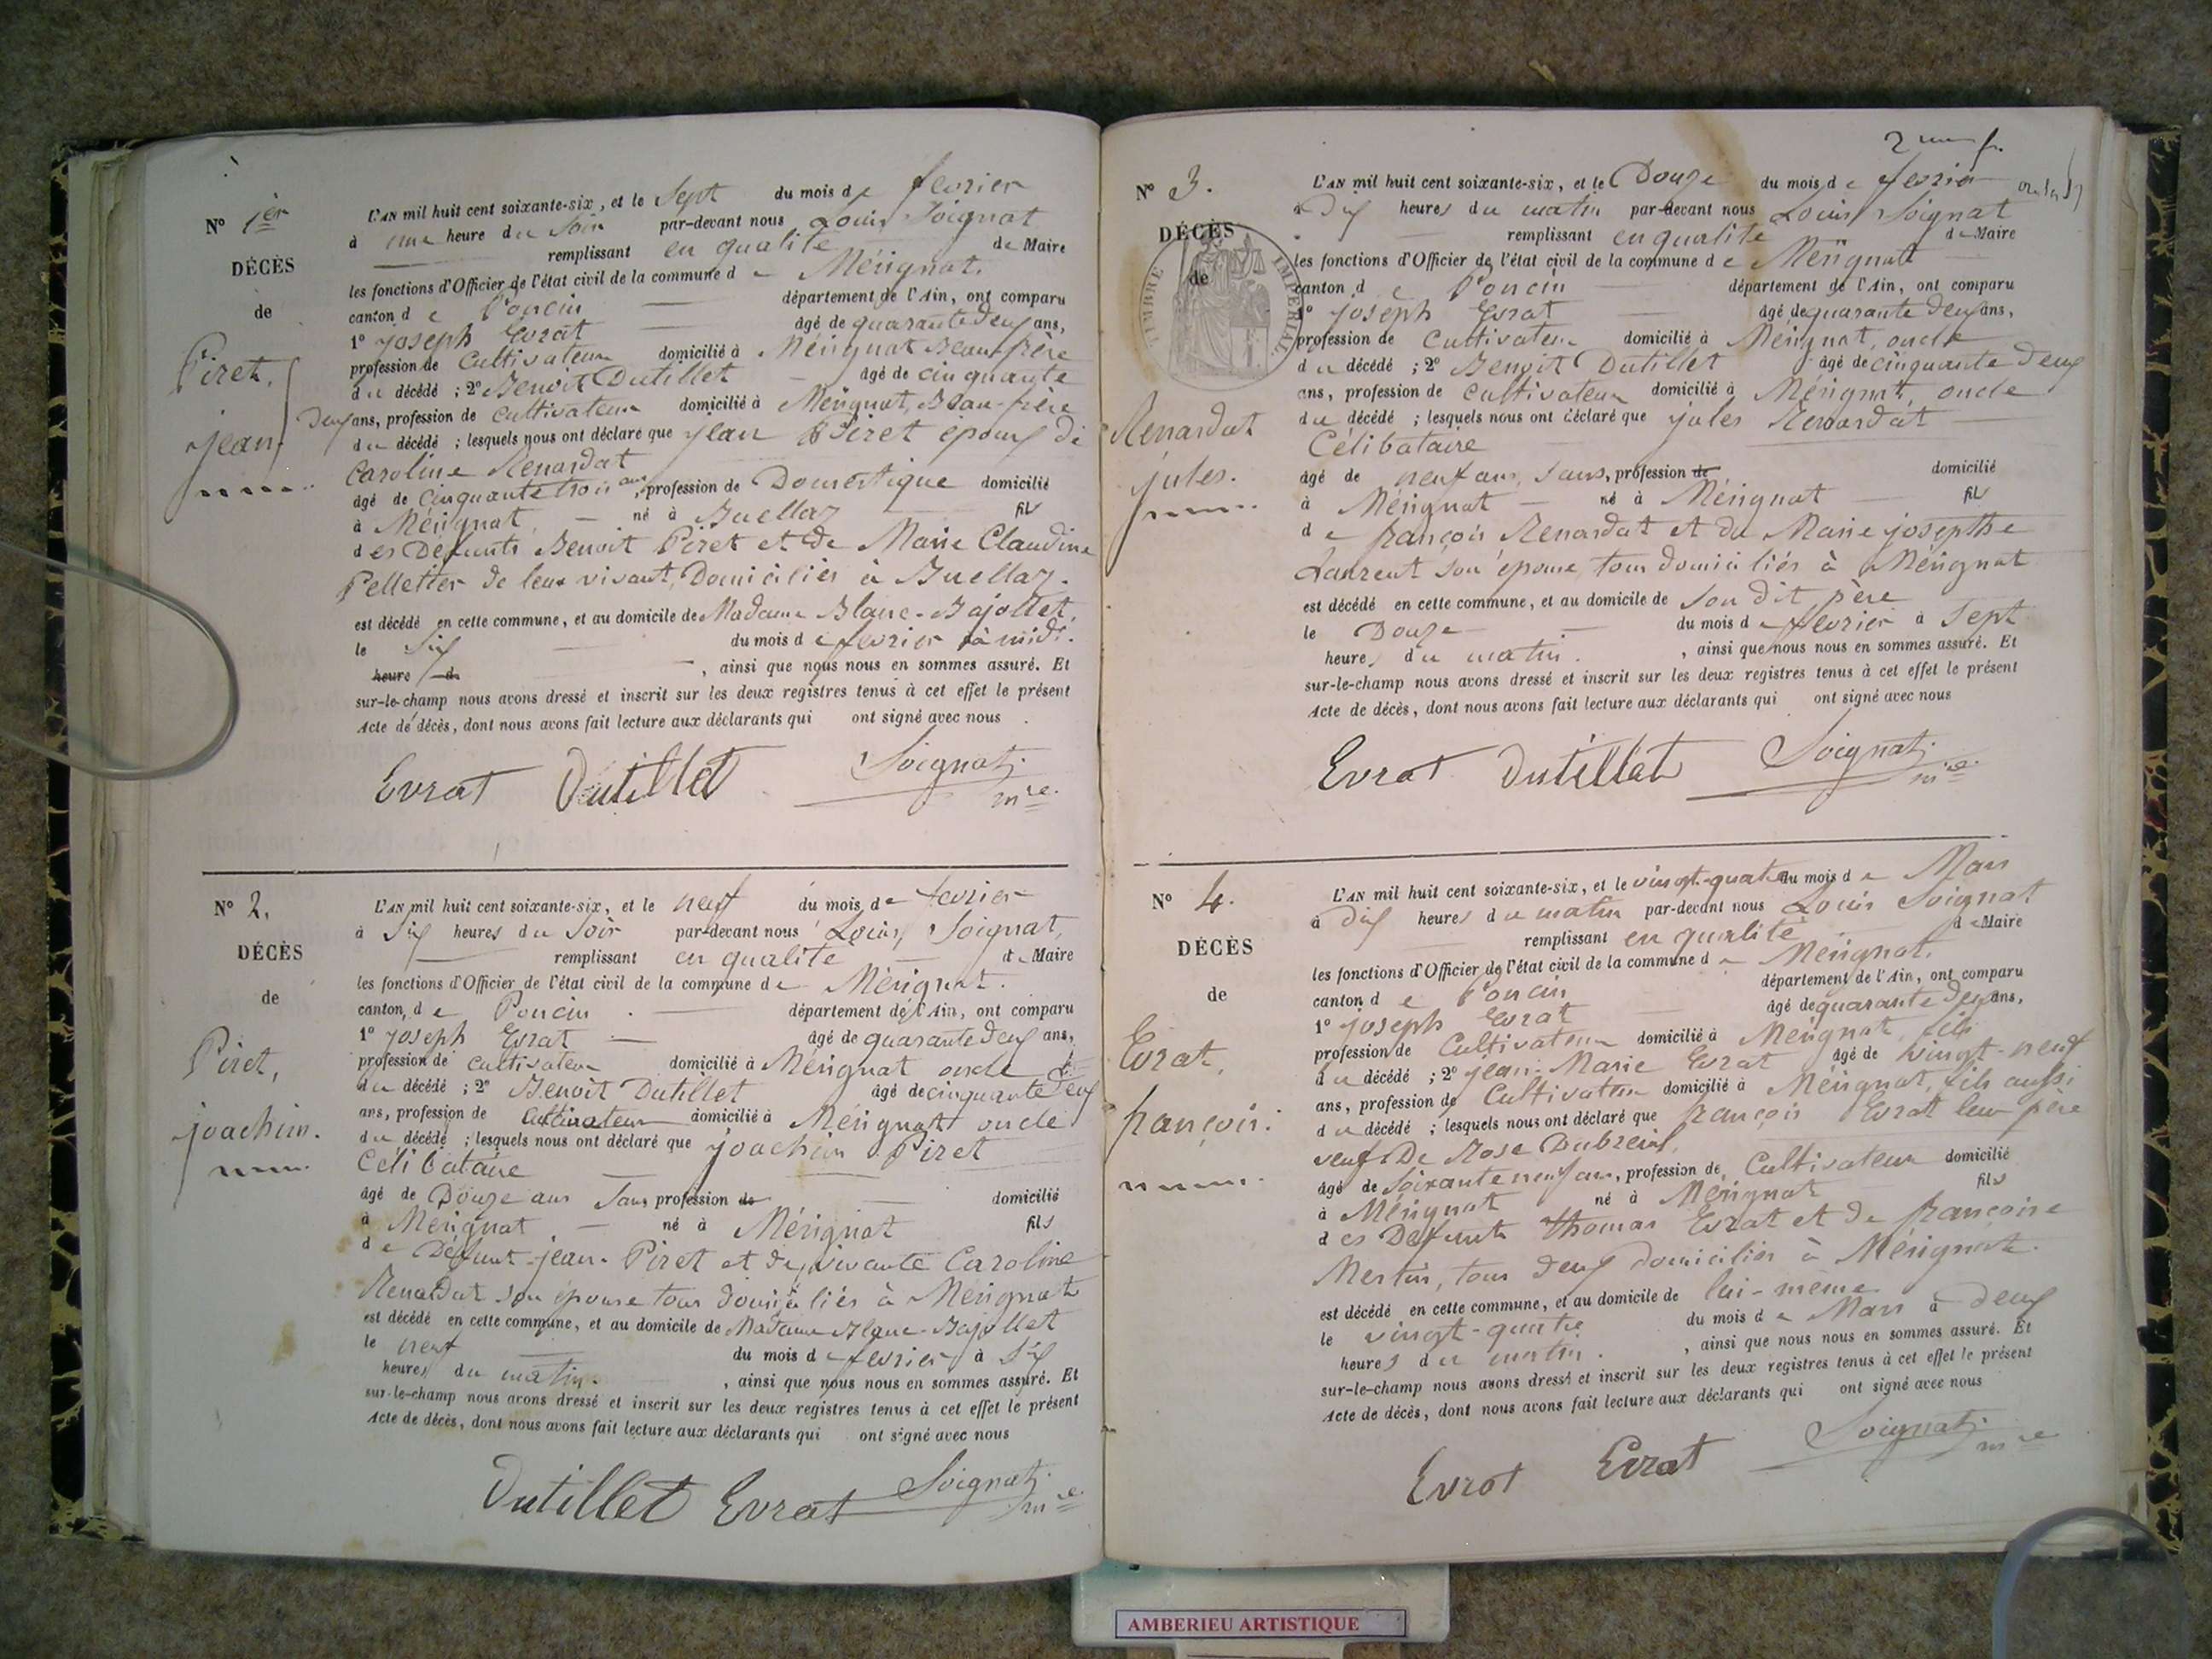 N° 1er
DÉCÈS
de
Piret,
jean
L'AN mil huit cent soixante-six, et le Sept du mois de fevrier
à une heure du Soir par-devant nous Louis Soignat
remplissant en qualité de Maire
les fonctions d'Officier de l'état civil de la commune de Mérignat.
canton de Poncin département de l'Ain, ont comparu
1° joseph Evrat âgé de quarante deux ans,
profession de Cultivateur domicilié à Mérignat Beau-frère
du décédé ; 2° Benoit Dutillet âgé de cinquante
deux ans, profession de cultivateur domicilié à Mérignat, Beau-frère
du décédé ; lesquels nous ont déclaré que jean Piret epoux de
Caroline Renardat
âgé de Cinquante trois ans, profession de Domestique domicilié
à Mérignat, né à Buellaz fils
des Défunts Benoit Piret et de Marie Claudine
Pelletier de leur vivant, Domiciliés à Buellaz.
est décédé en cette commune, et au domicile de Madame Blanc-Bajollet,
le Six du mois de fevrier à midi.
heure d , ainsi que nous nous en sommes assuré. Et
sur-le-champ nous avons dressé et inscrit sur les deux registres tenus à cet effet le présent
Acte de décès, dont nous avons fait lecture aux déclarants qui ont signé avec nous .
Evrat Dutillet Soignat
mre
N° 2.
DÉCÈS
de
Piret,
joachim.
L'AN mil huit cent soixante-six, et le neuf du mois de fevrier
à Six heures du Soir par-devant nous Louis Soignat,
remplissant en qualité de Maire
les fonctions d'Officier de l'état civil de la commune de Mérignat.
canton de Poncin . département de l'Ain, ont comparu
1° joseph Evrat âgé de quarante deux ans,
profession de cultivateur domicilié à Mérignat oncle
du décédé ; 2° Benoit Dutillet âgé de cinquante deux
ans, profession de cultivateur domicilié à Mérignat oncle
du décédé ; lesquels nous ont déclaré que joachim Piret
Célibataire
âgé de Douze ans Sans profession de domicilié
à Mérignat né à Mérignat fils
de Défunt jean Piret et de vivante Caroline
Renardat son épouse tous domiciliés à Mérignat
est décédé en cette commune, et au domicile de Madame Blanc-Bajollet
le neuf du mois de fevrier à Six
heures du matin. , ainsi que nous nous en sommes assuré. Et
sur-le-champ nous avons dressé et inscrit sur les deux registres tenus à cet effet le présent
Acte de décès, dont nous avons fait lecture aux déclarants qui ont signé avec nous
Dutillet Evrat Soignat
mre
2
N° 3.
DÉCÈS
de
TIMBRE IMPÉRIAL.
Renardat
jules.
L'AN mil huit cent soixante-six, et le Douze du mois de fevrier
à Dix heures du matin par-devant nous Louis Soignat
remplissant en qualité de Maire
les fonctions d'Officier de l'état civil de la commune de Mérignat
canton de Poncin département de l'Ain, ont comparu
1° joseph Evrat âgé de quarante deux ans,
profession de Cultivateur domicilié à Mérignat, oncle
du décédé ; 2° Benoit Dutillet âgé de cinquante deux
ans, profession de cultivateur domicilié à Mérignat, oncle
du décédé ; lesquels nous ont déclaré que jules Renardat
Célibataire
âgé de neuf ans, Sans, profession de domicilié
à Mérignat né à Mérignat fils
de françois Renardat et du Marie josepthe
Laurent son épouse, tous domiciliés à Mérignat
est décédé en cette commune, et au domicile de Son dit père
le Douze du mois de fevrier à Sept
heures du matin. , ainsi que nous nous en sommes assuré. Et
sur-le-champ nous avons dressé et inscrit sur les deux registres tenus à cet effet le présent
Acte de décès, dont nous avons fait lecture aux déclarants qui ont signé avec nous
Evrat Dutillet Soignat
mre
N° 4.
DÉCÈS
de
Evrat,
françois.
L'AN mil huit cent soixante-six, et le vingt-quatre du mois de Mars
à Dix heures du matin par-devant nous Louis Soignat
remplissant en qualité de Maire
les fonctions d'Officier de l'état civil de la commune de Mérignat.
canton de Poncin département de l'Ain, ont comparu
1° joseph Evrat âgé de quarante deux ans,
profession de Cultivateur domicilié à Mérignat, fils
du décédé ; 2° jean-Marie Evrat âgé de vingt-neuf
ans, profession de Cultivateur domicilié à Mérignat, fils aussi
du décédé ; lesquels nous ont déclaré que françois Evrat leur père
veuf De Rose Dubreuil,
âgé de Soixante neuf ans, profession de Cultivateur domicilié
à Mérignat né à Mérignat fils
des Défunts thomas Evrat et de françoise
Mertin, tous deux domiciliés à Mérignat.
est décédé en cette commune, et au domicile de lui-même
le vingt-quatre du mois de Mars à deux
heures du matin. , ainsi que nous nous en sommes assuré. Et
sur-le-champ nous avons dressé et inscrit sur les deux registres tenus à cet effet le présent
Acte de décès, dont nous avons fait lecture aux déclarants qui ont signé avec nous
Evrat Evrat Soignat
mre
AMBERIEU ARTISTIQUE